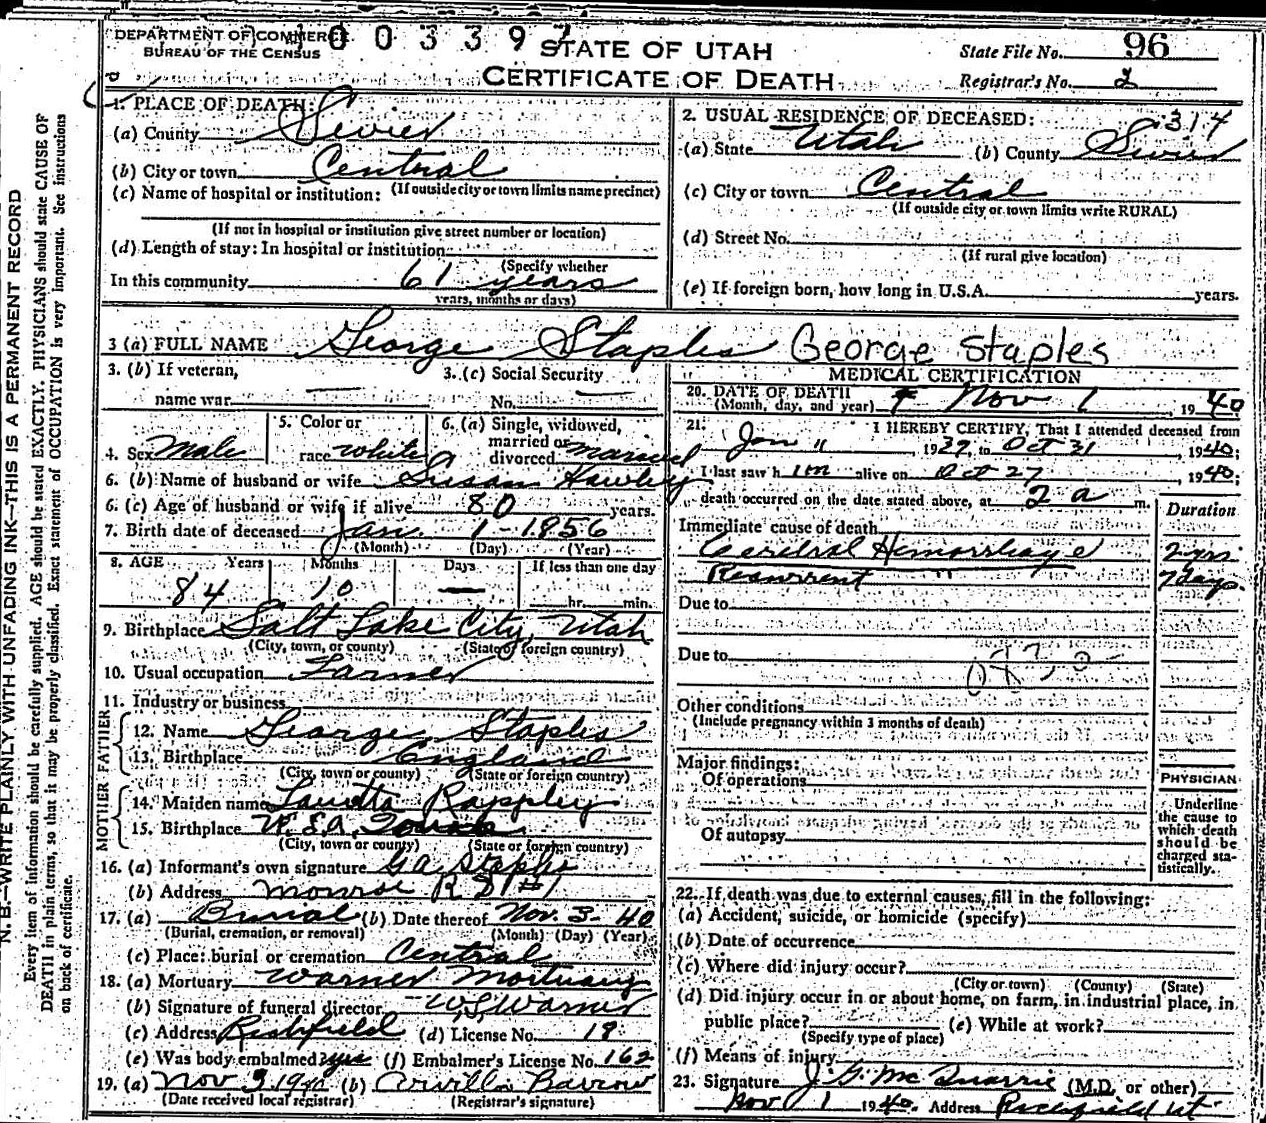 DEPARTMENT OF COMMERCE
BUREAU OF THE CENSUS
0 0 3 3 9 7
STATE OF UTAH
CERTIFICATE OF DEATH
State File No. 96
Registrar's No. 2
N. B.—WRITE PLAINLY WITH UNFADING INK—THIS IS A PERMANENT RECORD
Every item of information should be carefully supplied. AGE should be stated EXACTLY. PHYSICIANS should state CAUSE OF
DEATH in plain terms, so that it may be properly classified. Exact statement of OCCUPATION is very important. See instructions
on back of certificate.
1. PLACE OF DEATH:
(a) County Sevier
(b) City or town Central
(c) Name of hospital or institution: (If outside city or town limits name precinct)
(If not in hospital or institution give street number or location)
(d) Length of stay: In hospital or institution
(Specify whether
In this community 61 years
years, months or days)
2. USUAL RESIDENCE OF DECEASED: 314
(a) State Utah (b) County Sevier
(c) City or town Central
(If outside city or town limits write RURAL)
(d) Street No.
(If rural give location)
(e) If foreign born, how long in U.S.A. years.
3 (a) FULL NAME George Staples George Staples
3. (b) If veteran,
name war
3. (c) Social Security
No.
4. Sex Male
5. Color or
race white
6. (a) Single, widowed,
married or
divorced married
6. (b) Name of husband or wife Susan Hawley
6. (c) Age of husband or wife if alive 80 years.
7. Birth date of deceased Jan. 1 - 1856
(Month) (Day) (Year)
8. AGE Years Months Days If less than one day
84 10 — hr. min.
9. Birthplace Salt Lake City, Utah
(City, town, or county) (State or foreign country)
10. Usual occupation Farmer
11. Industry or business
FATHER
12. Name George Staples
13. Birthplace England
(City, town or county) (State or foreign country)
MOTHER
14. Maiden name Lauretta Rappley
15. Birthplace U.S.A.
(City, town or county) (State or foreign country)
16. (a) Informant's own signature G A Staples
(b) Address Monroe R D #1
17. (a) Burial (b) Date thereof Nov. 3 - 40
(Burial, cremation, or removal) (Month) (Day) (Year)
(c) Place: burial or cremation Central
18. (a) Mortuary Warner Mortuary
(b) Signature of funeral director W,S,Warner
(c) Address Richfield (d) License No. 19
(e) Was body embalmed? yes (f) Embalmer's License No. 162
19. (a) Nov 3 1940 (b) Arvilla Barrow
(Date received local registrar) (Registrar's signature)
MEDICAL CERTIFICATION
20. DATE OF DEATH
(Month, day, and year) Nov 1, 1940
21. I HEREBY CERTIFY, That I attended deceased from
Jan " 1939, to Oct 31, 1940;
I last saw h im alive on Oct 27, 1940;
death occurred on the date stated above, at 2 a m.
Duration
Immediate cause of death
Cerebral Hemorrhage 2 yrs.
Recurrent " 7 days.
Due to
Due to
Other conditions
(Include pregnancy within 3 months of death)
Major findings:
Of operations
Of autopsy
PHYSICIAN
Underline
the cause to
which death
should be
charged sta-
tistically.
22. If death was due to external causes, fill in the following:
(a) Accident, suicide, or homicide (specify)
(b) Date of occurrence
(c) Where did injury occur?
(City or town) (County) (State)
(d) Did injury occur in or about home, on farm, in industrial place, in
public place? (e) While at work?
(Specify type of place)
(f) Means of injury
23. Signature J. G. McQuarrie (M.D. or other)
Nov 1 1940. Address Richfield Ut